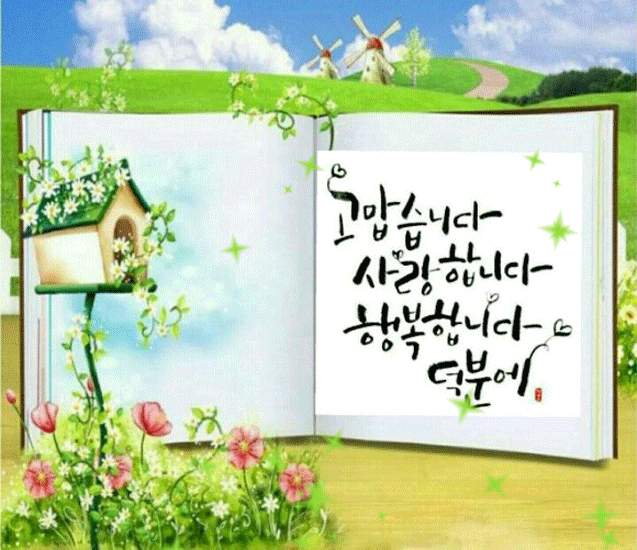 고맙습니다
사랑합니다
행복합니다
덕분에